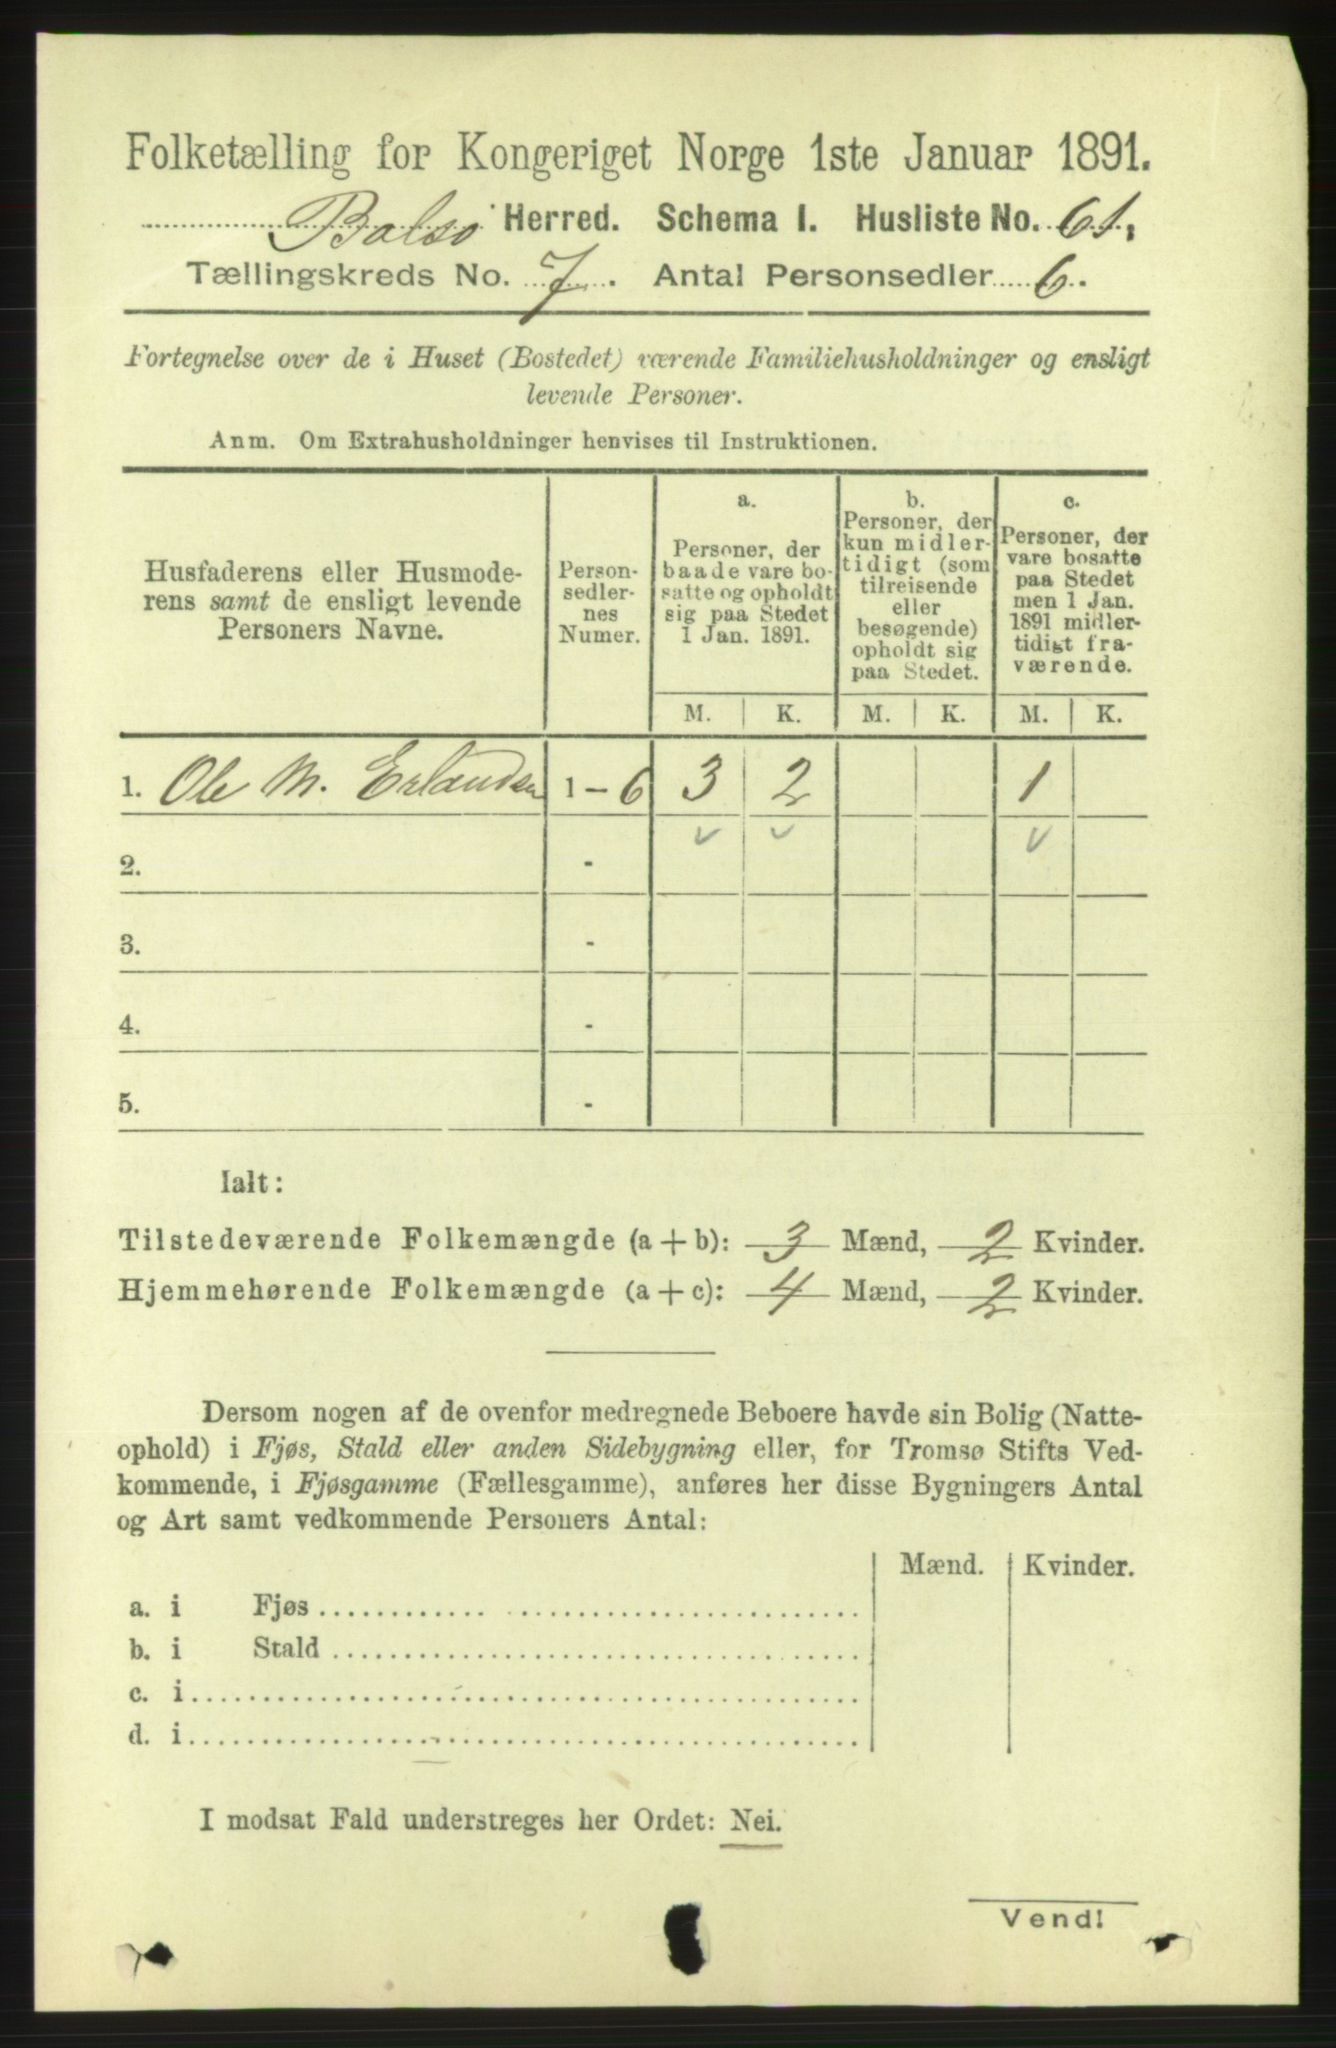 Folketælling for Kongeriget Norge 1ste Januar 1891.
Balsø Herred. Schema I. Husliste No. 61.
Tællingskreds No. 7. Antal Personsedler 6.
Fortegnelse over de i Huset (Bostedet) værende Familiehusholdninger og ensligt
levende Personer.
Anm. Om Extrahusholdninger henvises til Instruktionen.
Husfaderens eller Husmode-
rens samt de ensligt levende
Personers Navne.
Person-
sedler-
nes
Numer.
a.
Personer, der
baade vare bo-
satte og opholdt
sig paa Stedet
1 Jan. 1891.
b.
Personer, der
kun midler-
tidigt (som
tilreisende
eller
besøgende)
opholdt sig
paa Stedet.
c.
Personer, der
vare bosatte
paa Stedet
men 1 Jan.
1891 midler-
tidigt fra-
værende.
M. K. M. K. M. K.
1. Ole M. Erlandsen 1 - 6 3 2 1
2. -
3. -
4. -
5. -
Ialt:
Tilstedeværende Folkemængde (a + b): 3 Mænd, 2 Kvinder.
Hjemmehørende Folkemængde (a + c): 4 Mænd, 2 Kvinder.
Dersom nogen af de ovenfor medregnede Beboere havde sin Bolig (Natte-
ophold) i Fjøs, Stald eller anden Sidebygning eller, for Tromsø Stifts Ved-
kommende, i Fjøsgamme (Fællesgamme), anføres her disse Bygningers Antal
og Art samt vedkommende Personers Antal:
Mænd. Kvinder.
a. i Fjøs
b. i Stald
c. i
d. i
I modsat Fald understreges her Ordet: Nei.
Vend!